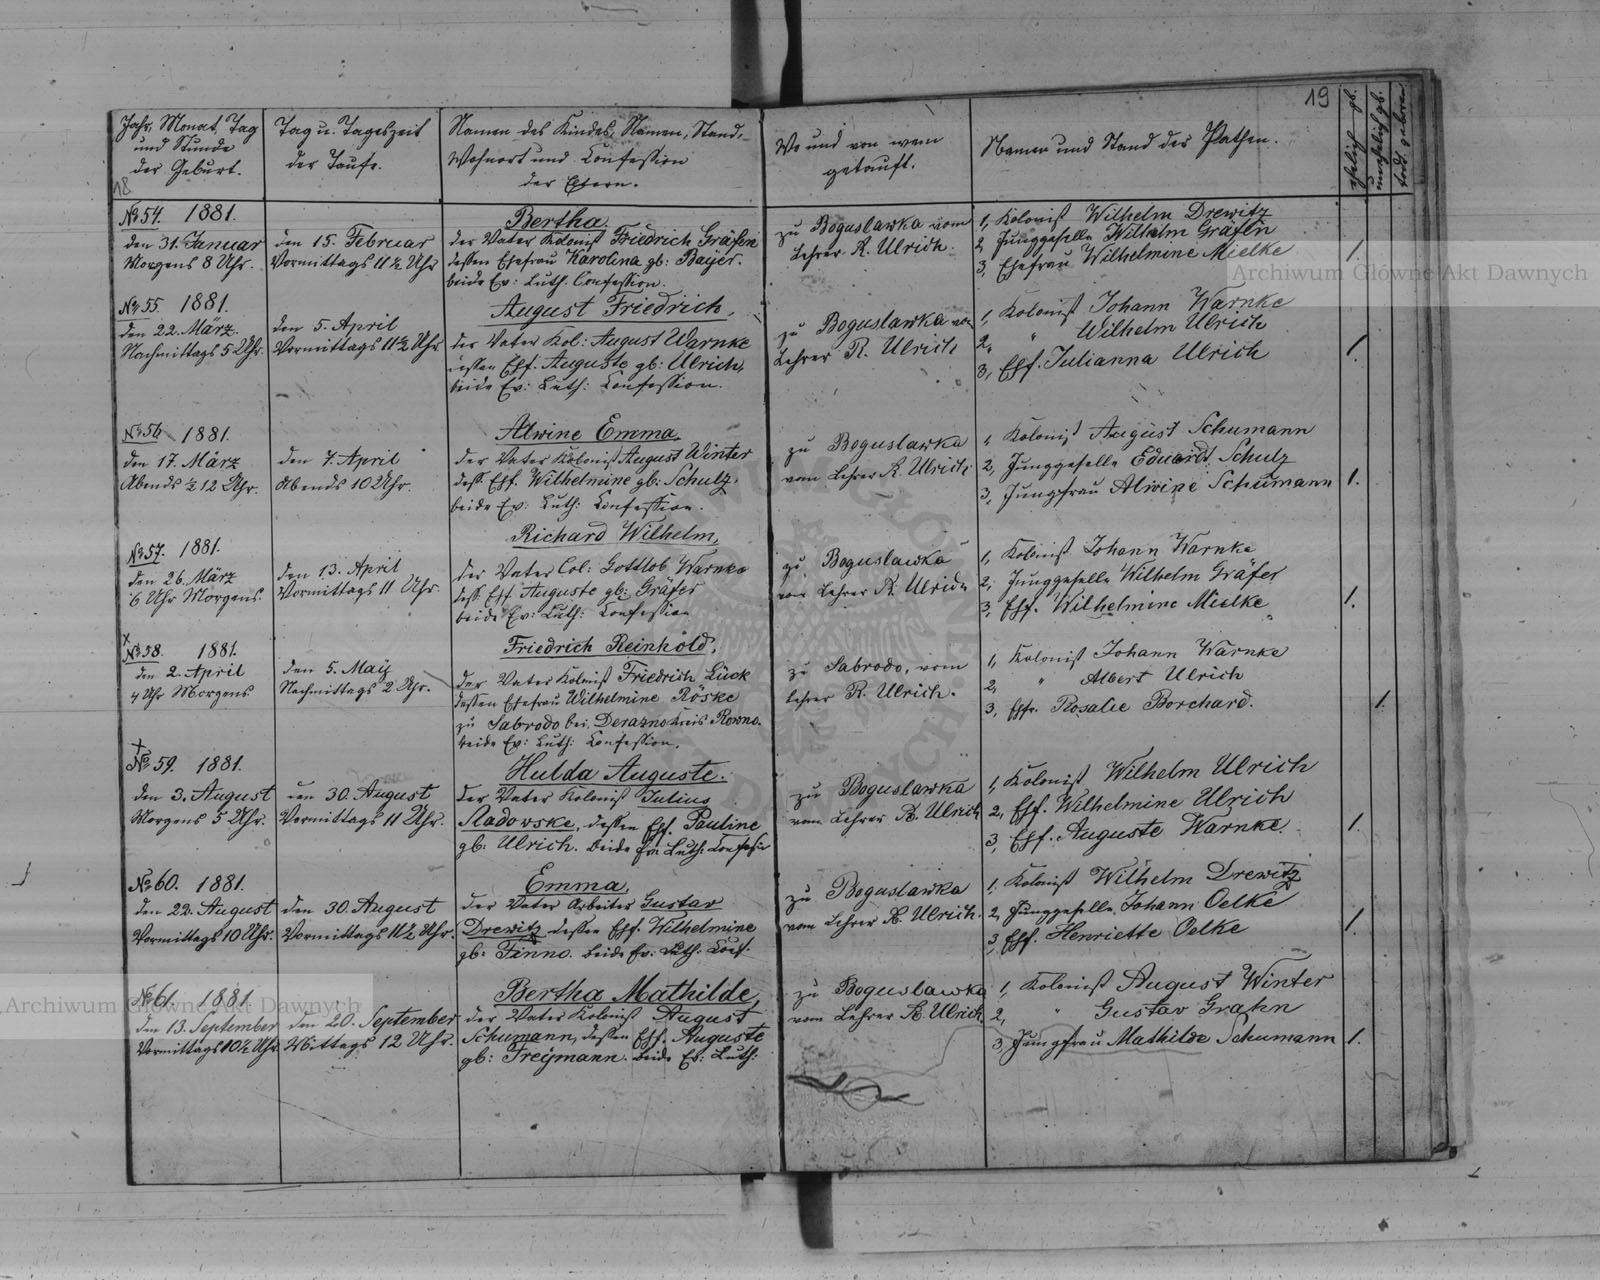 19
Jahr, Monat, Tag
und Stunde
der Geburt.
18
Tag u. Tageszeit
der Taufe.
Namen des Kindes, Namen, Stand,
Wohnort und Confession
der Eltern.
Wo und von wem
getauft.
Namen und Stand der Pathen.
ehelich gb.
unehelich gb.
todt geboren
№ 54. 1881.
den 31. Januar
Morgens 8 Uhr.
den 15. Februar
Vormittags 11½ Uhr
Bertha
der Vater Kolonist Friedrich Gräfen
dessen Ehefrau Karolina gb: Bayer.
beide Ev: Luth. Confession.
zu Boguslawka vom
Lehrer R. Ulrich.
1, Kolonist Wilhelm Drewitz
2, Junggeselle Wilhelm Gräfen
3, Ehefrau Wilhelmine Mielke
1.
№ 55. 1881.
den 22. März.
Nachmittags 5 Uhr.
den 5. April
Vormittags 11½ Uhr
August Friedrich.
der Vater Kol: August Warnke
dessen Ehf. Auguste gb: Ulrich,
beide Ev: Luth: Confession.
zu Boguslawka von
Lehrer R. Ulrich
1, Kolonist Johann Warnke
2, " Wilhelm Ulrich
3, Ehf. Julianna Ulrich
1.
№ 56 1881.
den 17. März
Abends ½ 12 Uhr.
den 7. April
Abends 10 Uhr.
Alwine Emma.
der Vater Kolonist August Winter
dess. Ehf. Wilhelmine gb: Schulz.
beide Ev: Luth: Confession.
zu Boguslawka
vom Lehrer R. Ulrich
1, Kolonist August Schumann
2, Junggeselle Eduardt Schulz
3, Jungfrau Alwine Schumann
1.
№ 57. 1881.
den 26. März
6 Uhr Morgens.
den 13. April
Vormittags 11 Uhr.
Richard Wilhelm.
der Vater Col: Gottlob Warnke
dess. Ehf. Auguste gb: Gräfer
beide Ev: Luth: Confession
zu Boguslawka
von Lehrer R. Ulrich
1, Kolonist Johann Warnke
2, Junggeselle Wilhelm Gräfer
3, Ehf. Wilhelmine Mielke
1.
x
№ 58. 1881.
den 2. April
4 Uhr Morgens
den 5. Maij
Nachmittags 2 Uhr.
Friedrich Reinhold.
der Vater Kolonist Friedrich Lück
dessen Ehefrau Wilhelmine Röske
zu Sabrodo bei Derazno kreis Rowno.
beide Ev: Luth: Confession.
zu Sabrodo, vom
Lehrer R. Ulrich.
1, Kolonist Johann Warnke
2, " Albert Ulrich
3, Ehfr. Rosalie Borchard.
1.
+
№ 59. 1881.
den 3. August
Morgens 5 Uhr.
den 30. August
Vormittags 11 Uhr.
Hulda Auguste.
der Vater Kolonist Julius
Sladowske, dessen Ehf. Pauline
gb: Ulrich. beide Ev: Luth: Confession
zu Boguslawka
vom Lehrer R. Ulrich
1, Kolonist Wilhelm Ulrich
2, Ehf. Wilhelmine Ulrich
3, Ehf. Auguste Warnke.
1.
№ 60. 1881.
den 22. August
Vormittags 10 Uhr.
den 30. August
Vormittags 11½ Uhr.
Emma.
der Vater Arbeiter Gustav
Drewitz dessen Ehf. Wilhelmine
gb: Finno. beide Ev: Luth: Conf.
zu Boguslawka
vom Lehrer R. Ulrich.
1, Kolonist Wilhelm Drewitz
2, Junggeselle Johann Oelke
3, Ehf. Henriette Oelke
1.
№ 61. 1881
den 13. September
Vormittags 10½ Uhr.
den 20. September
Mittags 12 Uhr.
Bertha Mathilde,
der Vater Kolonist August
Schumann, dessen Ehf. Auguste
gb: Freymann. beide Ev: Luth:
zu Boguslawka
vom Lehrer R. Ulrich.
1, Kolonist August Winter
2, " Gustav Grahn
3, Jungfrau Mathilde Schumann
1.
Archiwum Główne Akt Dawnych
Archiwum Główne Akt Dawnych